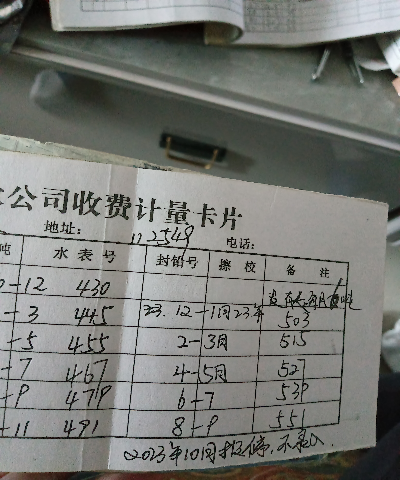 公司收费计量卡片
地址: 112549 电话:
吨 水表号 封铅号 擦校 备注
0-12 430
-3 445 23.12-1月23年 503
-5 455 2-3月 515
-7 467 4-5月 527
-9 479 6-7 539
-11 491 8-9 551
2023年10月报停.不